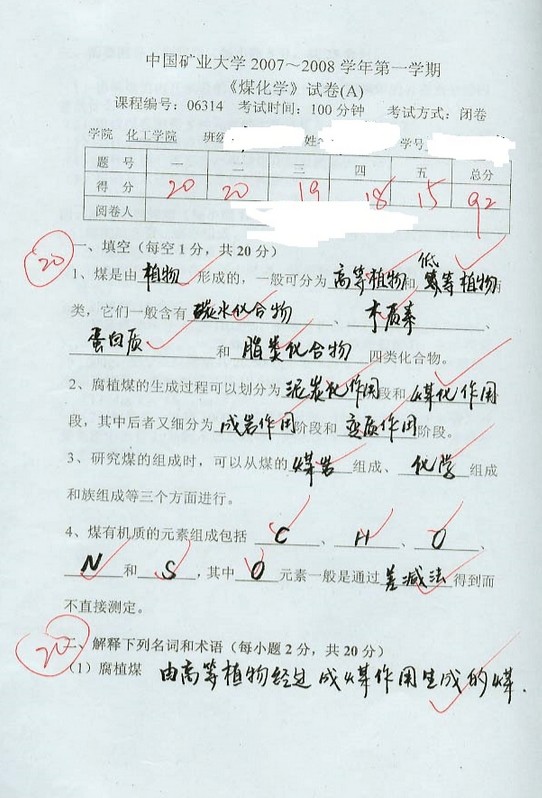 中国矿业大学2007～2008学年第一学期
《煤化学》试卷(A)
课程编号：06314 考试时间：100分钟 考试方式：闭卷
学院 化工学院 班级 姓名 学号
题号 一 二 三 四 五 总分
得分 20 20 19 18 15 92
阅卷人
20
一、填空（每空1分，共20分）
1、煤是由 植物 形成的，一般可分为 高等植物 和 低等植物 两
类，它们一般含有 碳水化合物 、 木质素 、
蛋白质 和 脂类化合物 四类化合物。
2、腐植煤的生成过程可以划分为 泥炭化作用 段和 煤化作用
段，其中后者又细分为 成岩作用 阶段和 变质作用 阶段。
3、研究煤的组成时，可以从煤的 煤岩 组成、 化学 组成
和族组成等三个方面进行。
4、煤有机质的元素组成包括 C 、 H 、 O 、
N 和 S ，其中 O 元素一般是通过 差减法 得到而
不直接测定。
20
二、解释下列名词和术语（每小题2分，共20分）
(1) 腐植煤 由高等植物经过成煤作用生成的煤.